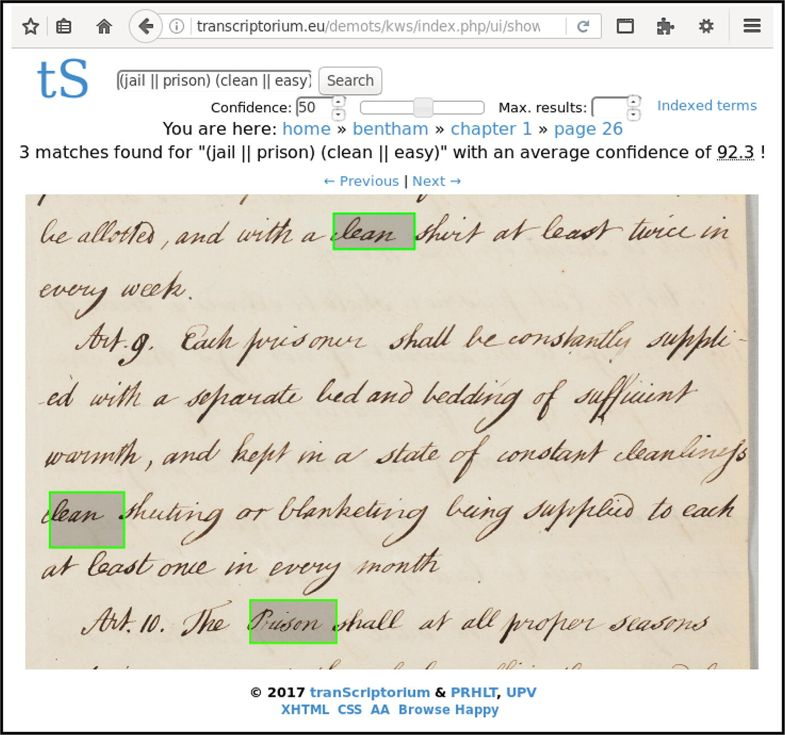 transcriptorium.eu/demots/kws/index.php/ui/show
tS
(jail || prison) (clean || easy)
Search
Confidence: 50
Max. results:
Indexed terms
You are here: home » bentham » chapter 1 » page 26
3 matches found for "(jail || prison) (clean || easy)" with an average confidence of 92.3 !
← Previous | Next →
be allotted, and with a clean shirt at least twice in
every week.
Art. 9. Each prisoner shall be constantly suppli-
ed with a separate bed and bedding of sufficient
warmth, and kept in a state of constant cleanliness
clean sheeting or blanketing being supplied to each
at least once in every month
Art. 10. The Prison shall at all proper seasons
© 2017 tranScriptorium & PRHLT, UPV
XHTML CSS AA Browse Happy